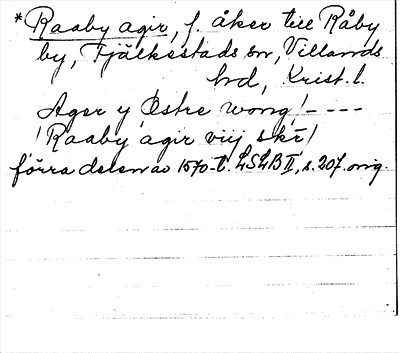 *Raaby agir, f. åker till Råby
by, Fjälkestads sn, Villands
hd, Krist. l.
Ager y Østre wong / - - - -
/ Raaby agir viij skr /
förra delen av 1570-t. LSLB II, s. 207. orig.